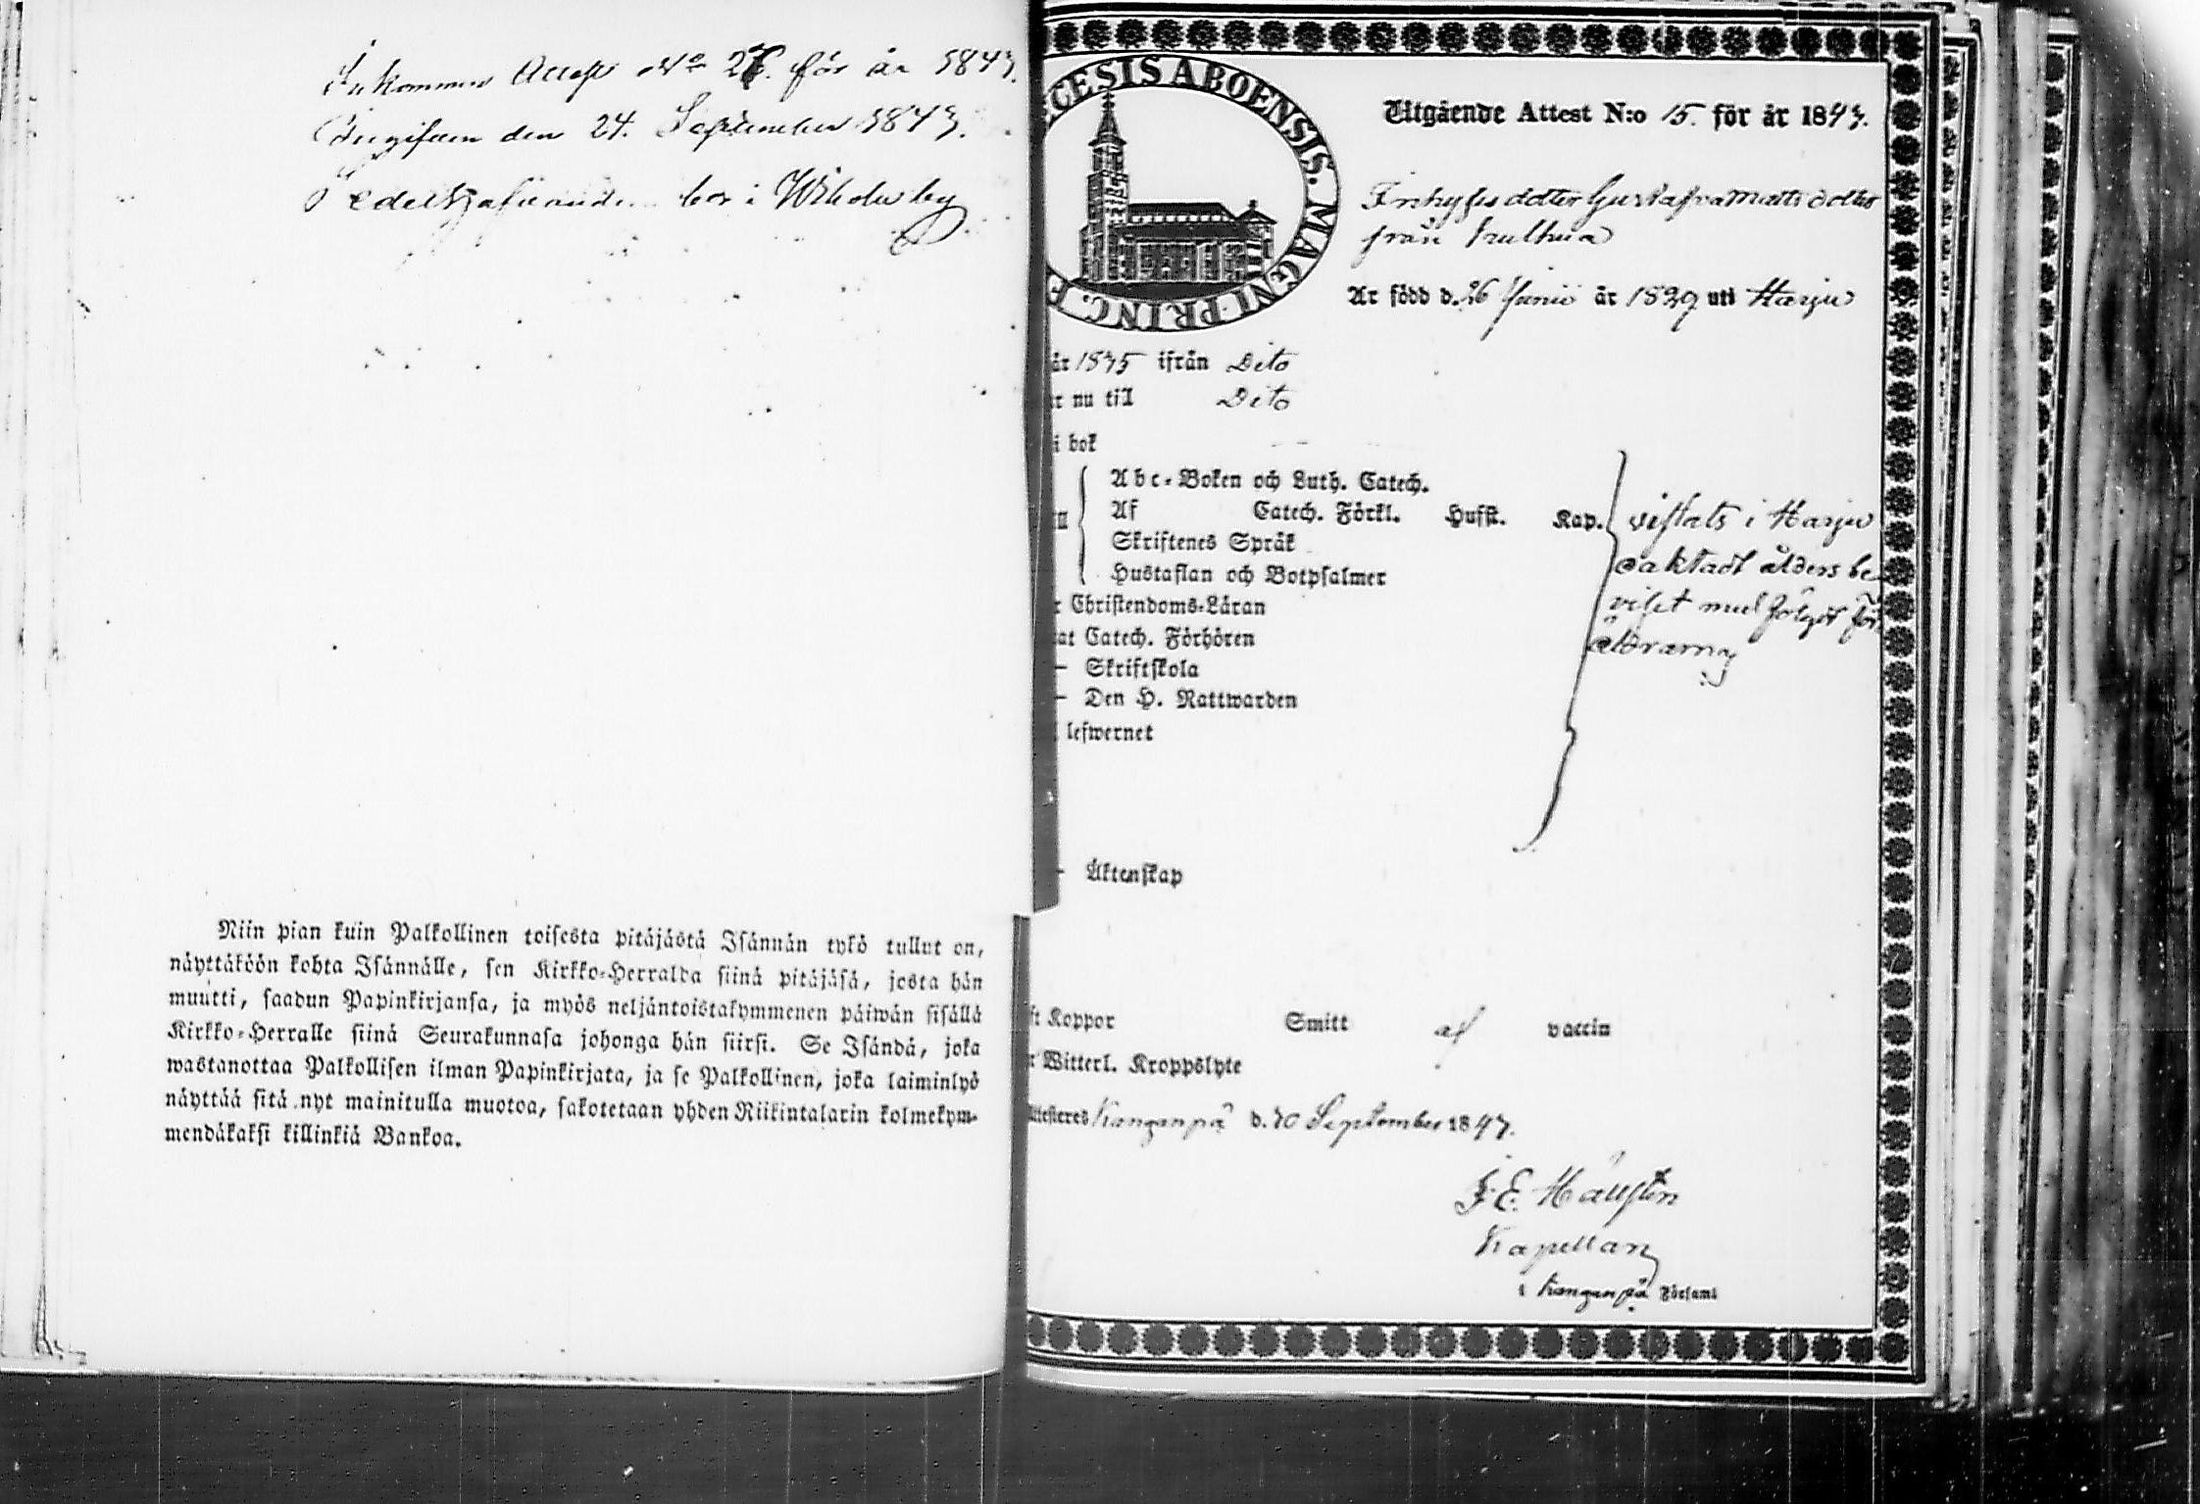 Inkommen Attest No 26. för år 1843.
Ingifven den 24. September 1843.
bor i
Niin pian kuin Palkollinen toisesta pitäjästä Isännän tykö tullut on,
näyttäköön kohta Isännälle, sen Kirkko-Herralda siinä pitäjäsä, josta hän
muutti, saadun Papinkirjansa, ja myös neljäntoistakymmenen päiwän sisällä
Kirkko-Herralle siinä Seurakunnasa johonga hän siirsi. Se Isändä, joka
wastanottaa Palkollisen ilman Papinkirjata, ja se Palkollinen, joka laiminlyö
näyttää sitä nyt mainitulla muotoa, sakotetaan yhden Riikintalarin kolmekym-
mendäkaksi killinkiä Bankoa.
CESIS ABOENSIS. MAGNI PRINC. F
Utgående Attest N:o 15. för år 1843.
Inhyses dotter Gustafva Mattsdotter
från
Är född d. 26 Junii år 1829 uti Harju
år 1835 ifrån Dito
r nu till Dito
i bok
Abc-Boken och Luth. Catech.
Af Catech. Förkl. Hufst. Kap.
Skriftenes Språk
Hustaflan och Botpsalmer
r Christendoms-Läran
at Catech. Förhören
— Skriftskola
— Den H. Nattwarden
lefwernet
vistats i Harju
oaktadt ålders be-
viset med följdt för
äldrarna
— Äktenskap
ft Koppor Smitt af vaccin
r Witterl. Kroppslyte
Attesteres Kangasnpä d. 20 September 1843.
Kapellan
i Kangasnpä Förfaml